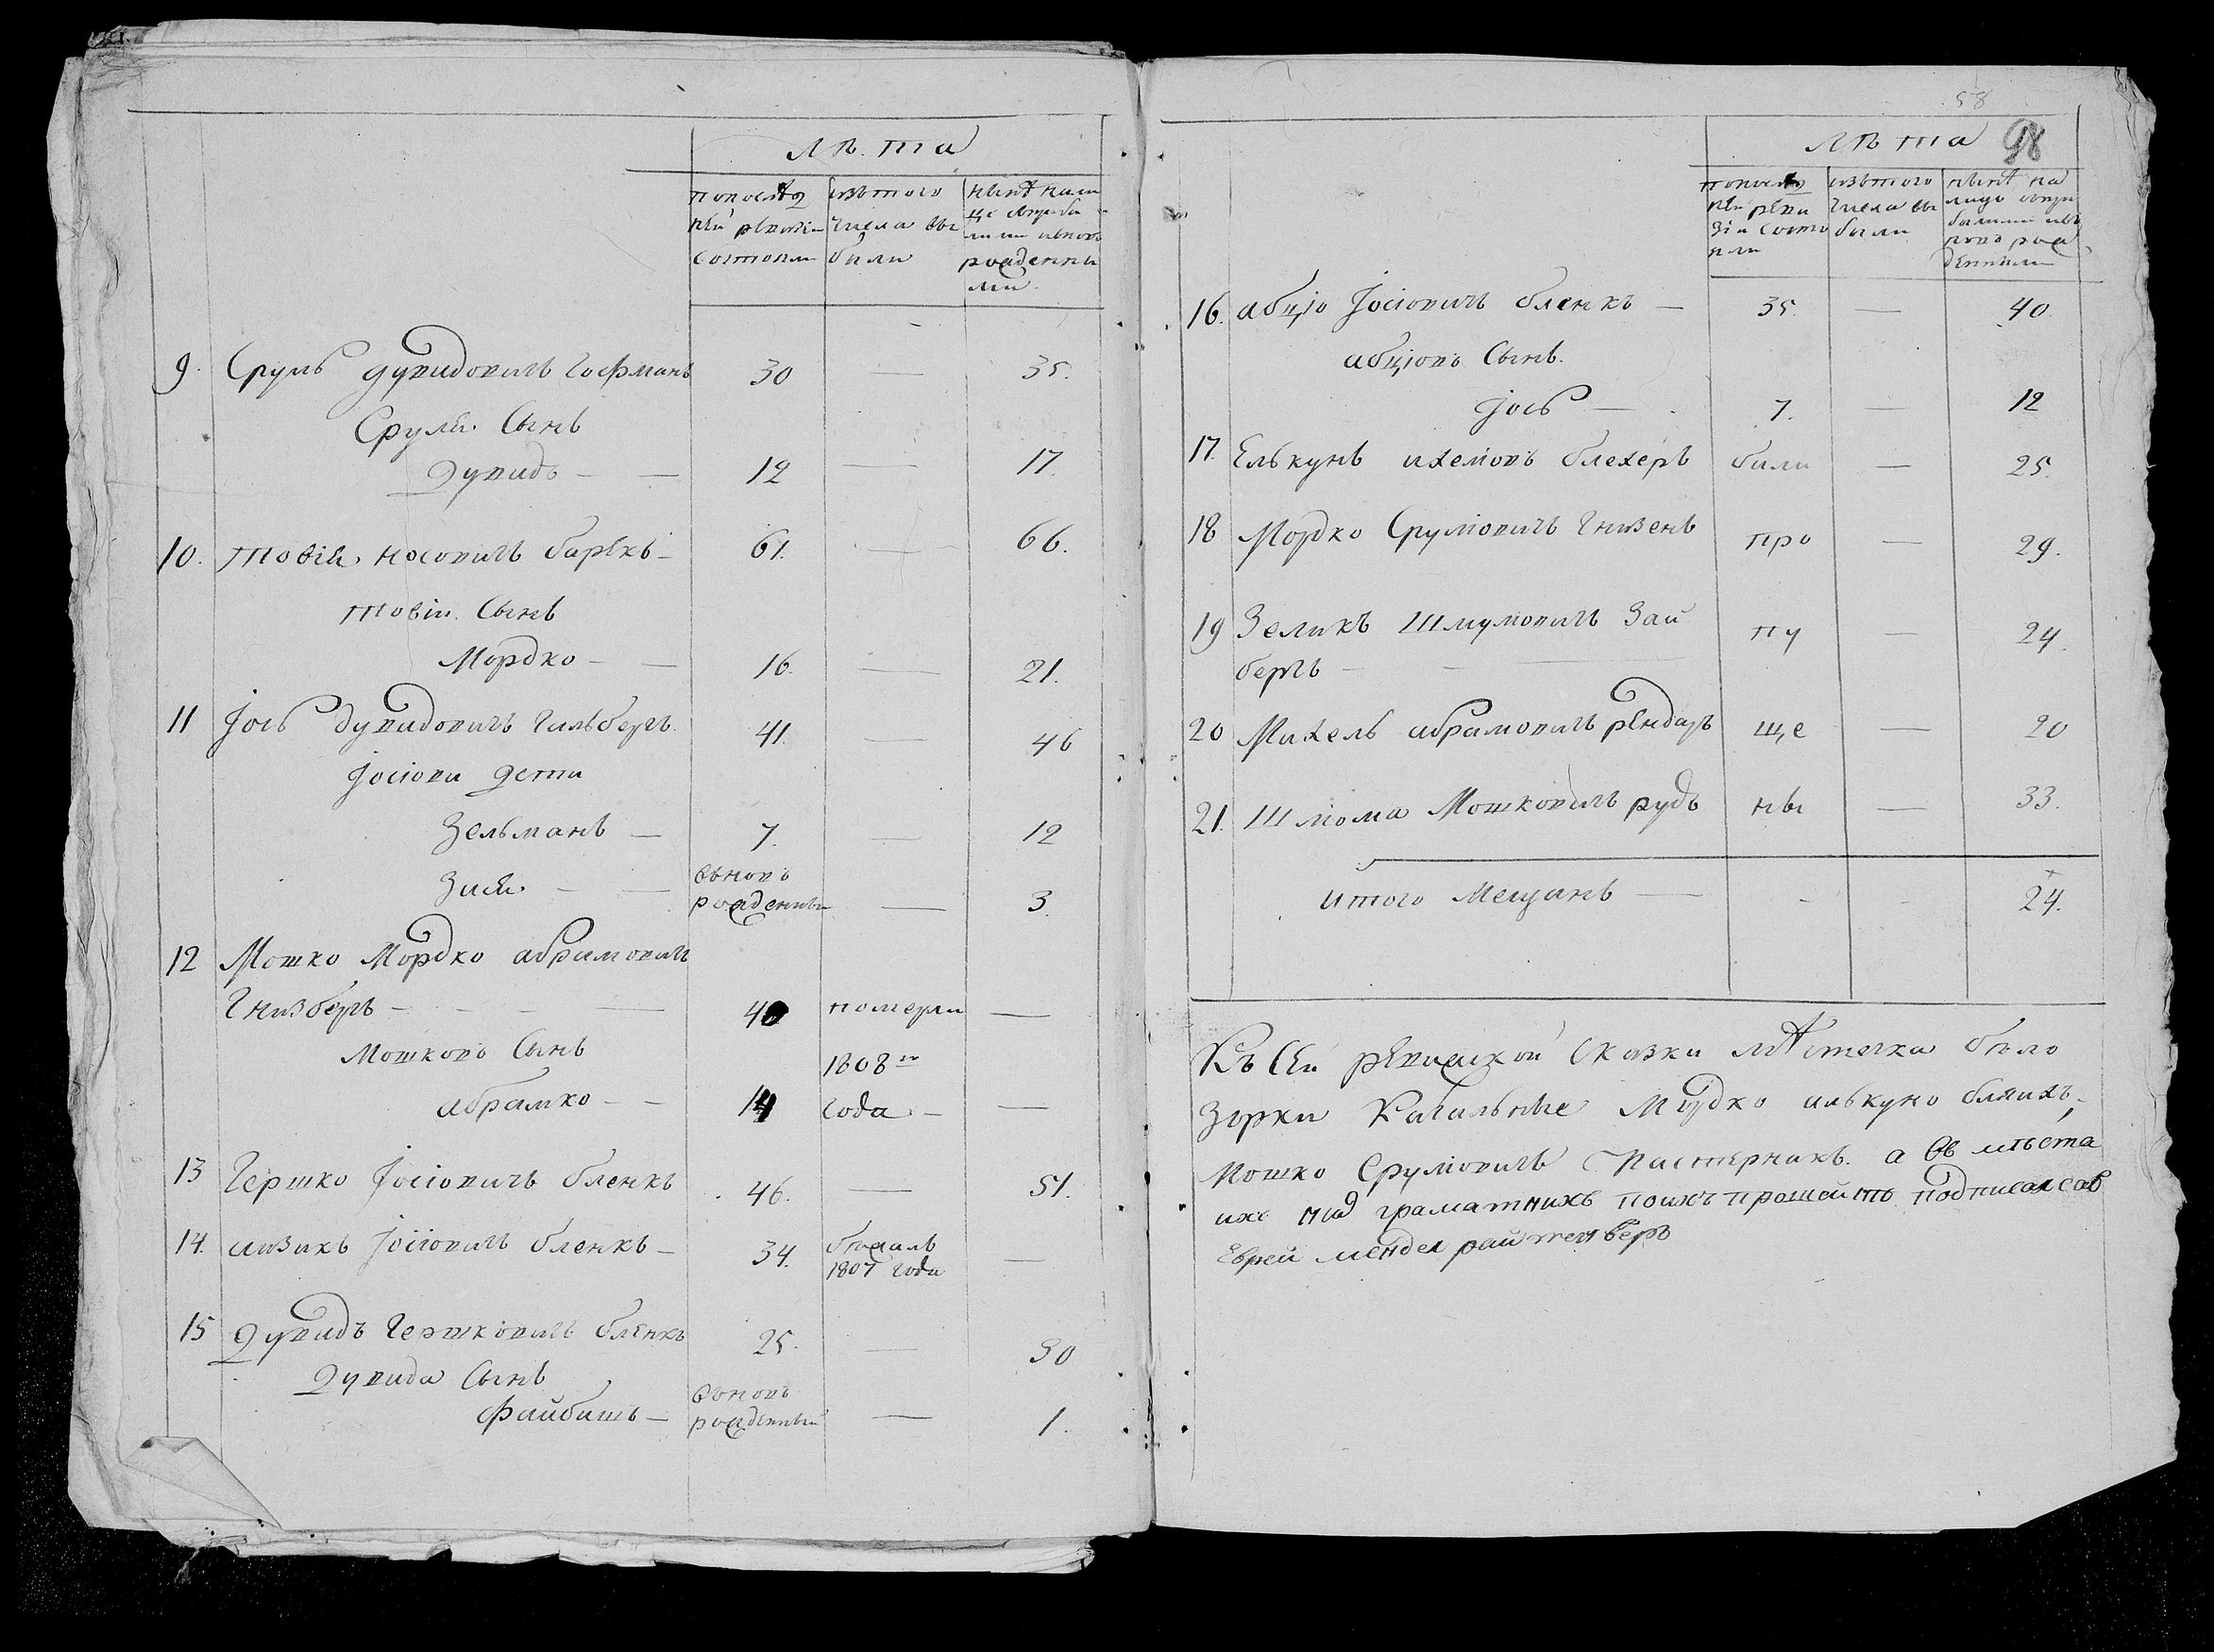 Лѣта
попослѣд
ней ревизіи
состояли
изътого
числа вы
были
нынѣ нали
це сприбы
лыми ивновь
рожденны
ми.
9. Сруль Дувидовичъ Гофманъ 30 — 35.
Сруля Сынъ
Дувидъ — — 12 — 17.
10. Товія Носовичъ барекъ — 61. — 66.
Товіи Сынъ
Мордко — — 16. — 21.
11 Іось Дувидовичъ Гильбергъ. 41. — 46
Іосіови Дети
Зельманъ — 7. — 12
вновь
Зися — — рожденны — 3.
12 Мошко Мордко абрамовичъ
Гнизбергъ — — — 40 померли —
Мошковъ Сынъ 1808го
абрамко — — 14 года — —
13 Гершко Іосіовичъ бленкъ 46. — 51.
14. иизикъ Іосіовичъ бленкъ — 34. бѣжалъ —
1807 года
15 Дувидъ Гершковичъ бленкъ 25. — 30
Дувида Сынъ вновь
Файбишъ — рожденный — 1.
58
Лѣта 98
попослѣд
ней реви
зіи состо
яли
изътого
числа вы
были
нынѣ на
лицо спри
былыми ивъ
новь рож
денными
16. абцѣо Іосіовичъ бленкъ — 35. — 40.
абціовъ Сынъ.
Іось — . 7. — 12
17. Елькунъ ихемовъ блехеръ были — 25.
18 Мордко Сруліовичъ Гнизенъ про — 29.
19 Зеликъ Шмулювичъ Зай пу — 24.
бергъ — —
20 Михель абрамовичъ рендаръ ще — 20
21. Шліома Мошковичъ рудъ ны — 33.
Итого Мещанъ — - - 24.
Къ Сей ревижской сказки мѣстечка бѣло
Зорки Кагальные Мордко илькуно бляихъ,
Мошко Сруліовичъ Пастернакъ. а Въ мѣста
ихъ граматнихъ поихъ прошеніть подписался
Еврей мендел райтенберъ